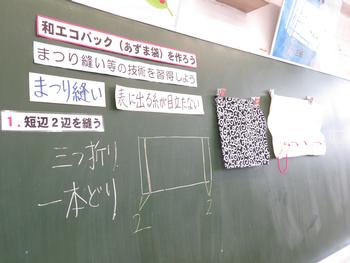 和エコバック（あずま袋）を作ろう
まつり縫い等の技術を習得しよう
まつり縫い
表に出る糸が目立たない
1．短辺2辺を縫う
三つ折り
一本どり
2
2